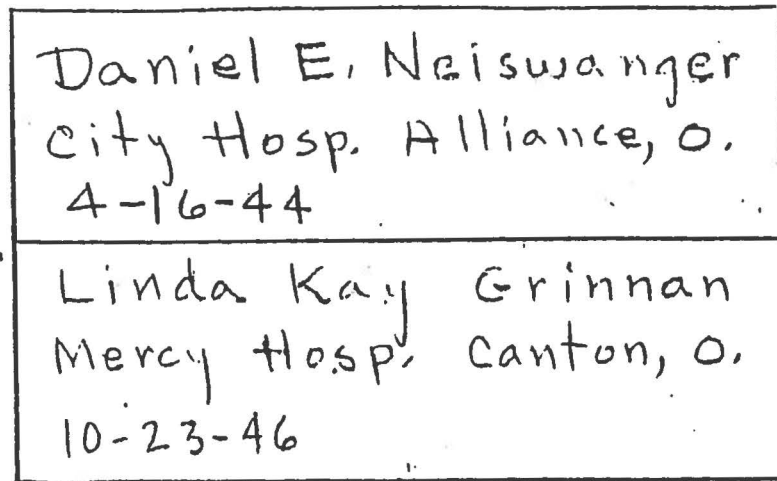 Daniel E. Neiswanger
City Hosp. Alliance, O.
4-16-44
Linda Kay Grinnan
Mercy Hosp. Canton, O.
10-23-46